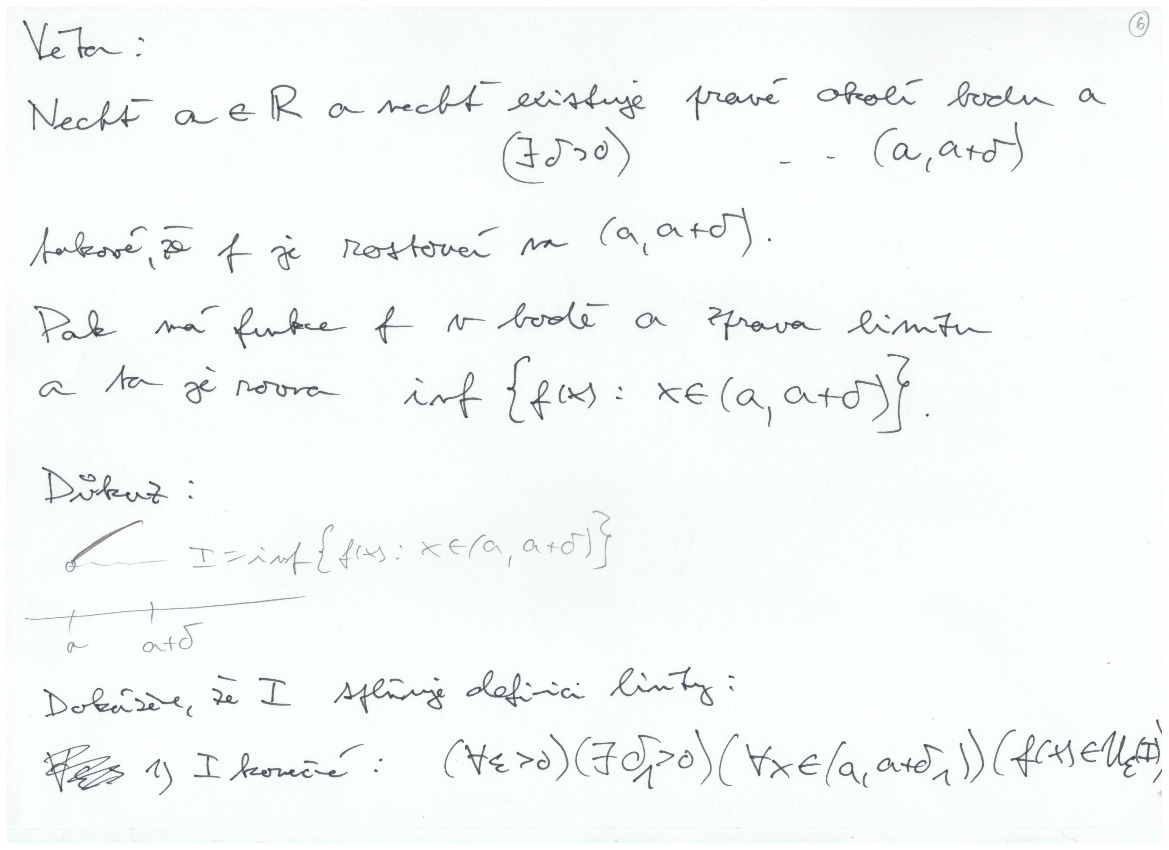 6
Věta:
Nechť a ∈ R a nechť existuje pravé okolí bodu a
(∃δ>0) - - (a, a+δ)
takové, že f je rostoucí na (a, a+δ).
Pak má funkce f v bodě a zprava limitu
a ta je rovna inf {f(x): x∈(a, a+δ)}.
Důkaz:
I = inf {f(x): x∈(a, a+δ)}
a a+δ
Dokážeme, že I splňuje definici limity:
1) I konečné: (∀ε>0)(∃δ₁>0)(∀x∈(a, a+δ₁))(f(x)∈U_ε(I)